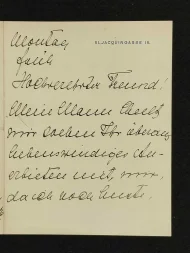 Montag
früh
III. JACQUINGASSE 18.
Hochverehrter Freund!
Mein Mann theilt
mir soeben Ihr überaus
liebenswürdiges An-
erbieten mit, mir,
doch noch heute